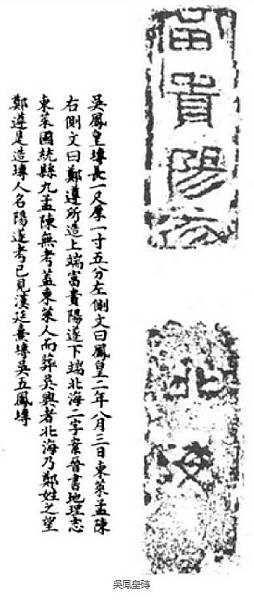 富貴陽遂
北海
吳鳳皇塼長一尺厚一寸五分左側文曰鳳皇二年八月三日東萊孟陳
右側文曰鄭遵所造上端富貴陽遂下端北海二字案晉書地理志
東萊國統縣九孟陳無考蓋東萊人而葬吳興者北海乃鄭姓之望
鄭遵是造塼人名陽遂考已見漢延熹塼吳五鳳塼
吳鳳皇磚